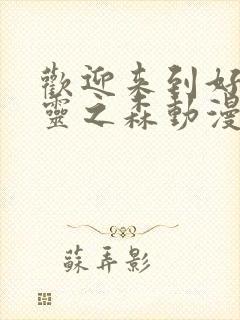 歡迎来到好
靈之森動漫
蘇弄影